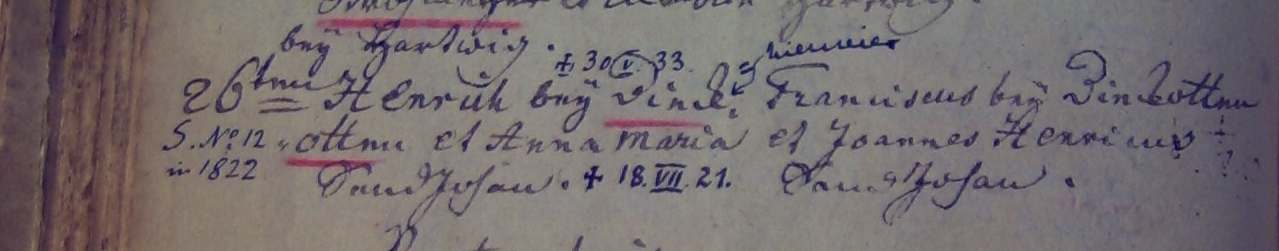 bey Hartwig.
+ 30 V. 33. Niemeier
26ten Henrich bey Dinck, Franciscus bey Dinckotten
S. No. 12 otten et Anna Maria et Joannes Henricus
in 1822 Sandjohan. + 18. VII. 21. Sandjohan.